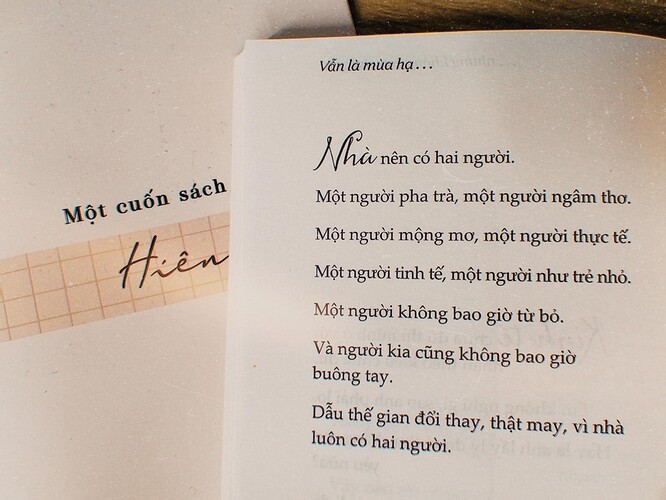 Vẫn là mùa hạ...
Nhà nên có hai người.
Một người pha trà, một người ngâm thơ.
Một người mộng mơ, một người thực tế.
Một người tinh tế, một người như trẻ nhỏ.
Một người không bao giờ từ bỏ.
Và người kia cũng không bao giờ
buông tay.
Dẫu thế gian đổi thay, thật may, vì nhà
luôn có hai người.
Một cuốn sách
Hiên